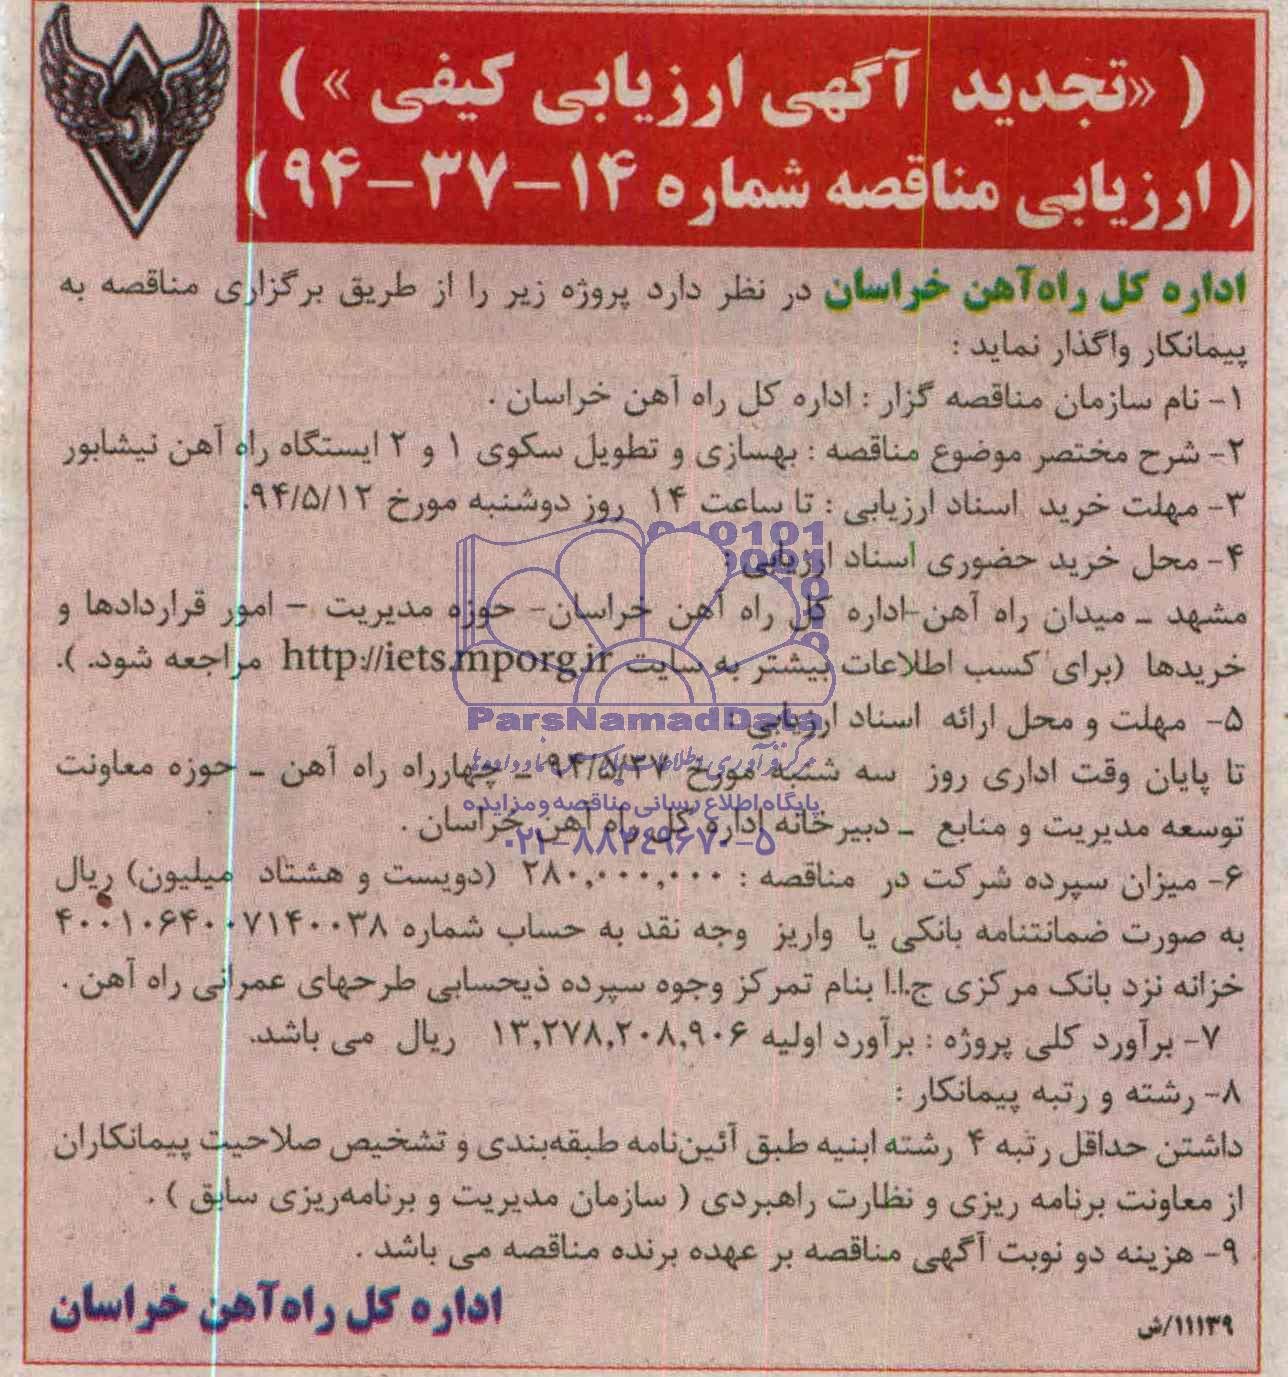 ( «تجدید آگهی ارزیابی کیفی » )
( ارزیابی مناقصه شماره ۱۴-۳۷-۹۴ )
اداره کل راه‌آهن خراسان در نظر دارد پروژه زیر را از طریق برگزاری مناقصه به
پیمانکار واگذار نماید :
۱- نام سازمان مناقصه گزار : اداره کل راه آهن خراسان .
۲- شرح مختصر موضوع مناقصه : بهسازی و تطویل سکوی ۱ و ۲ ایستگاه راه آهن نیشابور
۳- مهلت خرید اسناد ارزیابی : تا ساعت ۱۴ روز دوشنبه مورخ ۹۴/۵/۱۲.
۴- محل خرید حضوری اسناد ارزیابی :
مشهد ـ میدان راه آهن-اداره کل راه آهن خراسان- حوزه مدیریت - امور قراردادها و
خریدها (برای کسب اطلاعات بیشتر به سایت http://iets.mporg.ir مراجعه شود. ).
۵- مهلت و محل ارائه اسناد ارزیابی :
تا پایان وقت اداری روز سه شنبه مورخ ـ چهارراه راه آهن ـ حوزه معاونت
توسعه مدیریت و منابع ـ دبیرخانه اداره کل راه آهن خراسان .
۶- میزان سپرده شرکت در مناقصه : ۲۸۰,۰۰۰,۰۰۰ (دویست و هشتاد میلیون) ریال
به صورت ضمانتنامه بانکی یا واریز وجه نقد به حساب شماره ۴۰۰۱۰۶۴۰۰۷۱۴۰۰۳۸
خزانه نزد بانک مرکزی ج.ا.ا بنام تمرکز وجوه سپرده ذیحسابی طرحهای عمرانی راه آهن .
۷- برآورد کلی پروژه : برآورد اولیه ۱۳,۲۷۸,۲۰۸,۹۰۶ ریال می باشد.
۸- رشته و رتبه پیمانکار :
داشتن حداقل رتبه ۴ رشته ابنیه طبق آئین‌نامه طبقه‌بندی و تشخیص صلاحیت پیمانکاران
از معاونت برنامه ریزی و نظارت راهبردی ( سازمان مدیریت و برنامه‌ریزی سابق ) .
۹- هزینه دو نوبت آگهی مناقصه بر عهده برنده مناقصه می باشد .
اداره کل راه‌آهن خراسان
۱۱۱۳۹/ش
ParsNamadData
پایگاه اطلاع رسانی مناقصه و مزایده
۰۲۱-۸۸۳۴۹۶۷۰-۵